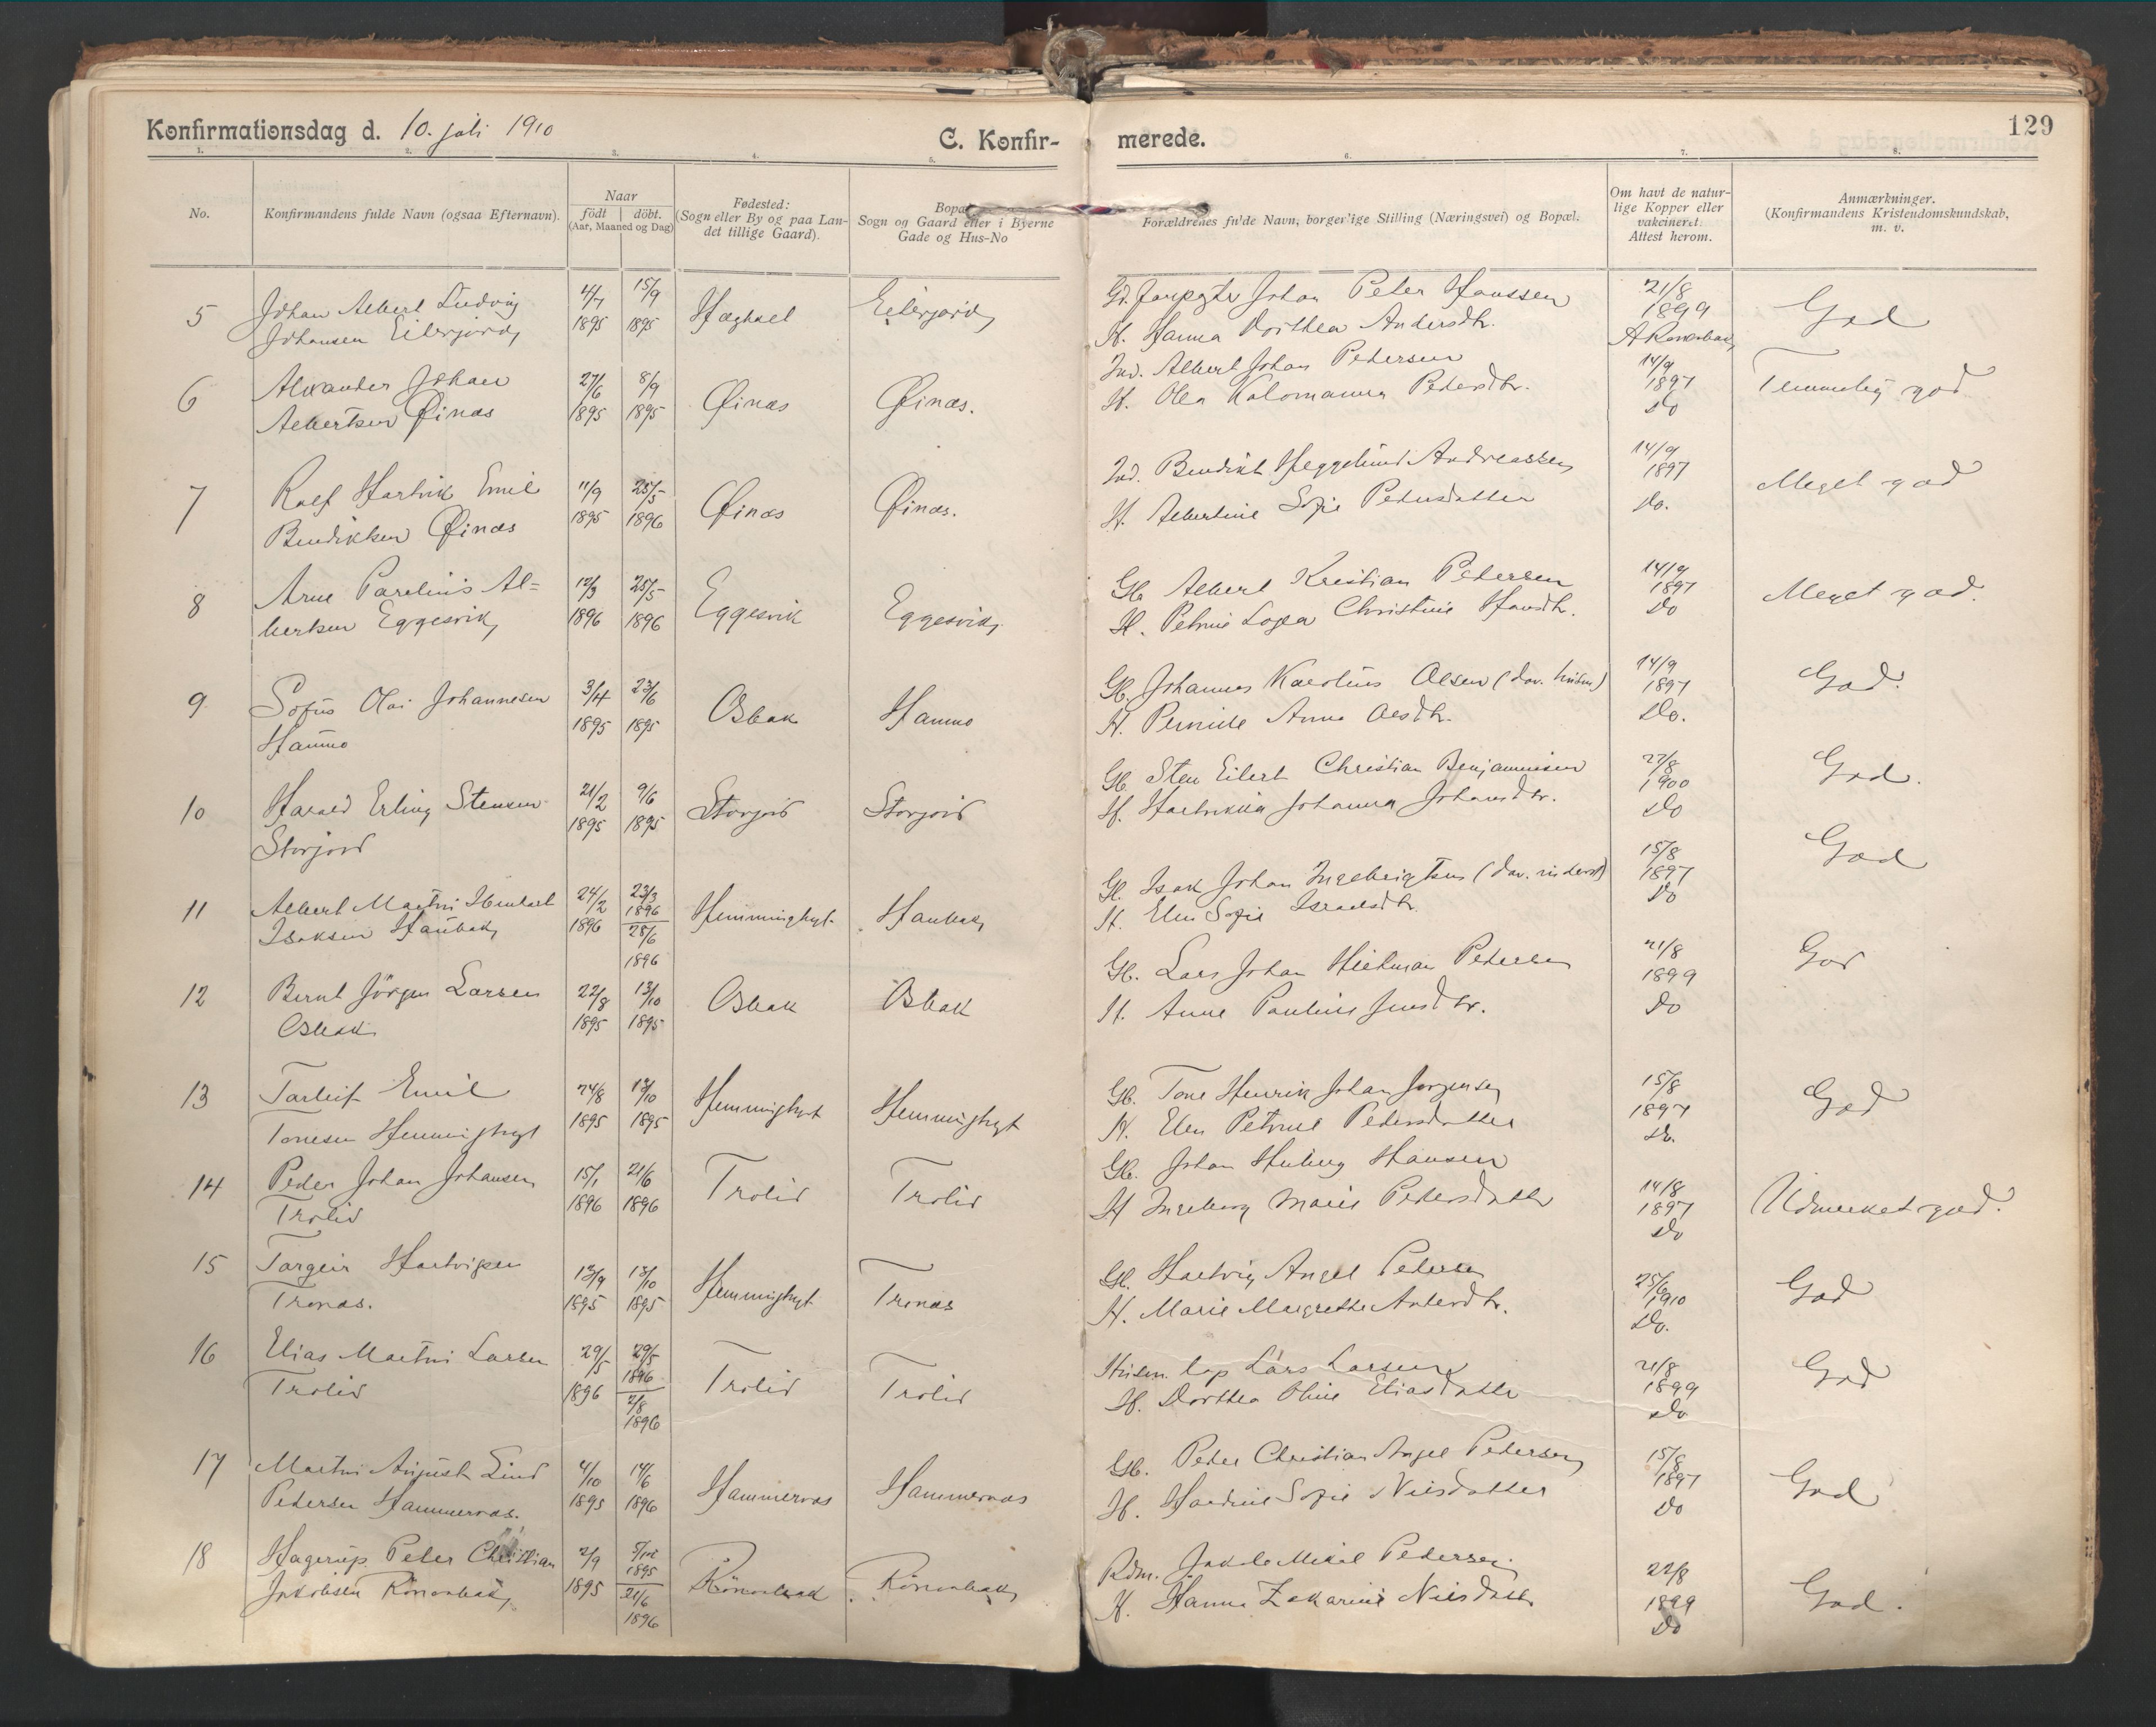 Konfirmationsdag d. 10. juli 1910
C. Konfir-
merede.
129
1. 2. 3. 4. 5. 6. 7. 8.
No.
Konfirmandens fulde Navn (ogsaa Efternavn).
Naar
født | döbt.
(Aar, Maaned og Dag)
Fødested:
(Sogn eller By og paa Lan-
det tillige Gaard).
Sogn og Gaard eller i Byerne
Gade og Hus-No
Forældrenes fulde Navn, borgerlige Stilling (Næringsvei) og Bopæl.
Om havt de natur-
lige Kopper eller
vakcineret.
Attest herom.
Anmærkninger.
(Konfirmandens Kristendomskundskab,
m. v.
5
Johan Albert Ludvig
Johansen Eilerjord
1895
15/9
1895
Eilerjord
Johan Peter Hanssen
H. Hanna Dorthea Andersdtr.
21/8
1899
God
6
Alexander Johan
Albertsen Øinæs
27/6
1895
8/9
1895
Øinæs
Øinæs.
Ind. Albert Johan Petersen
H. Olea Kolomanna Petersdtr.
14/9
1897
Do
Temmelig god
7
Rolf Hartvik Emil
Bendiksen Øinæs
11/9
1895
25/5
1896
Øinæs
Øinæs.
Ind. Bendikt Heggelund Andreassen
H. Albertine Sofie Petersdatter
14/9
1897
Do.
Meget god
8
Arne Parelius Al=
bertsen Eggesvik
12/3
1896
25/5
1896
Eggesvik
Eggesvik
Gb. Albert Kristian Petersen
H. Petrine Lovisa Christine Hansdtr.
14/9
1897
Do
Meget god.
9
Sofus Olai Johannesen
Hammo
3/4
1895
23/6
1895
Osbak
Hammo
Gb. Johannes Karolius Olsen
H. Pernille Anna Olsdtr.
14/9
1897
Do.
God.
10
Harald Erling Stensen
Storjord
21/2
1895
9/6
1895
Storjord
Storjord
Gb. Sten Eilert Christian Benjaminsen
H. Hartvikka Johanna Johansdtr.
27/8
1900
Do
God.
11
Albert Martin
Isaksen Haubak
24/2
1896
23/3
1896
28/6
1896
Hemminghyt
Haubak
Gb. Isak Johan Ingebrigtsen
H. Elen Sofie Israelsdtr.
15/8
1897
Do
God
12
Bernt Jörgen Larsen
Osbak
22/8
1895
13/10
1895
Osbak
Osbak
Gb. Lars Johan Hietman Petersen
H. Anne Pauline Jensdtr.
21/8
1899
Do
God
13
Torleif Emil
Tonesen Hemminghyt
24/8
1895
13/10
1895
Hemminghyt
Hemminghyt
Gb. Tone Henrik Johan Jorgensen
H. Elen Petrine Petersdatter
15/8
1897
Do.
God
14
Peder Johan Johansen
Trolid
15/1
1896
21/6
1896
Trolid
Trolid
Gb. Johan Hansen
H Ingeborg Marie Petersdatter
14/8
1897
Do
Udmerket god.
15
Torgeir Hartvigsen
Tronæs.
13/9
1895
13/10
1895
Hemminghyt
Tronæs
Gb. Hartvig Angel Petersen
H. Marie Margrethe Antondtr.
25/6
1910
Do.
God
16
Elias Martin Larsen
Trolid
29/5
1896
29/5
1896
2/8
1896
Trolid
Trolid
Husm. lap Lars Larsen
H. Dorthea Oline Eliasdatter
21/8
1899
Do
God
17
Martin August Lind
Petersen Hammernæs.
4/10
1895
14/6
1896
Hammernæs
Hammernæs
Gb. Peter Christian Angel Petersen
H. Hardine Sofie Nilsdatter
15/8
1897
Do
God
18
Hagerup Peter Christian
Jakobsen Rönonbak
2/9
1895
1895
21/6
1896
Rönonbak
Rönonbak
Rdm. Jakob Mikal Petersen
H. Hanna Zakarine Nilsdatter
22/8
1899
Do
God.